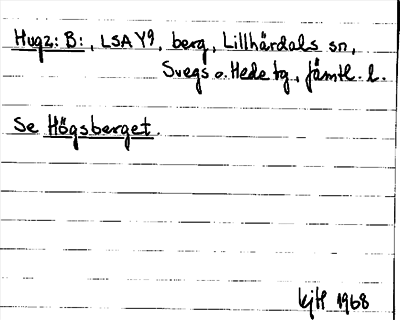 Hugz: B:, LSA Y9, berg, Lillhärdals sn,
Svegs o. Hede tg., Jämtl. l.
Se Högsberget.
1968